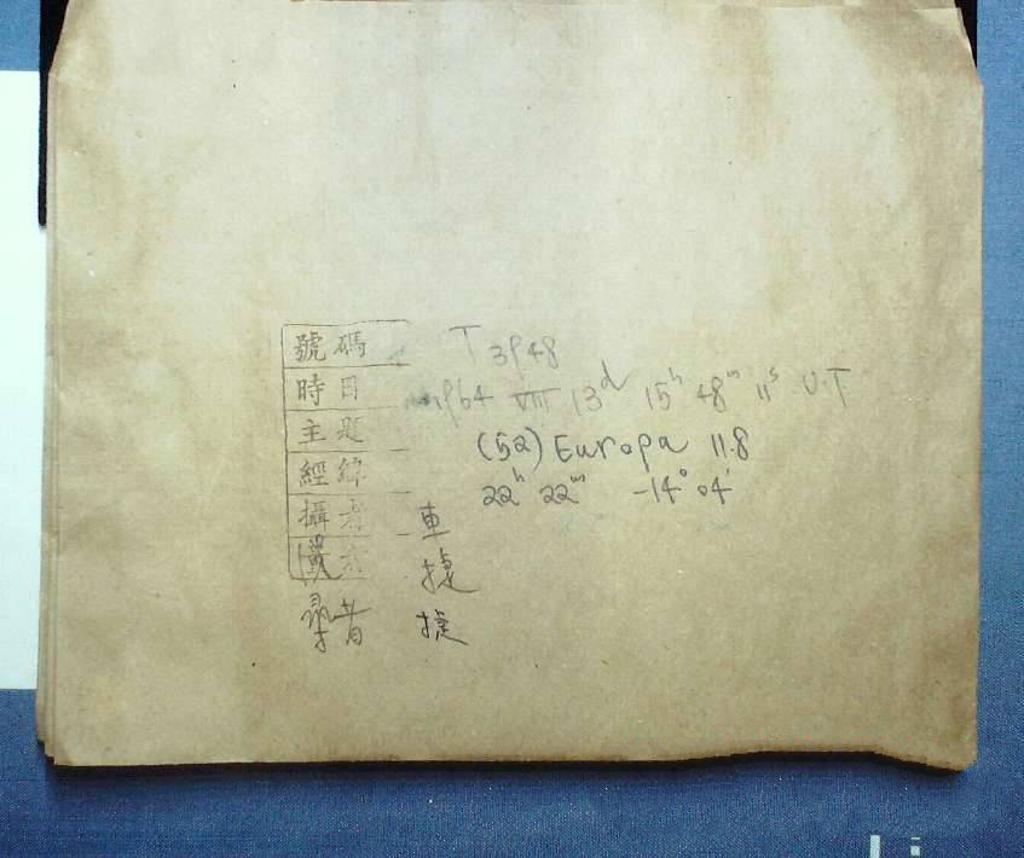 號碼 T 3948
時日 1964 VIII 13d 15h 48m 11s U.T
主題 (52) Europa 11.8
經緯 22h 22m -14° 04'
攝者 車
捷
者 捷